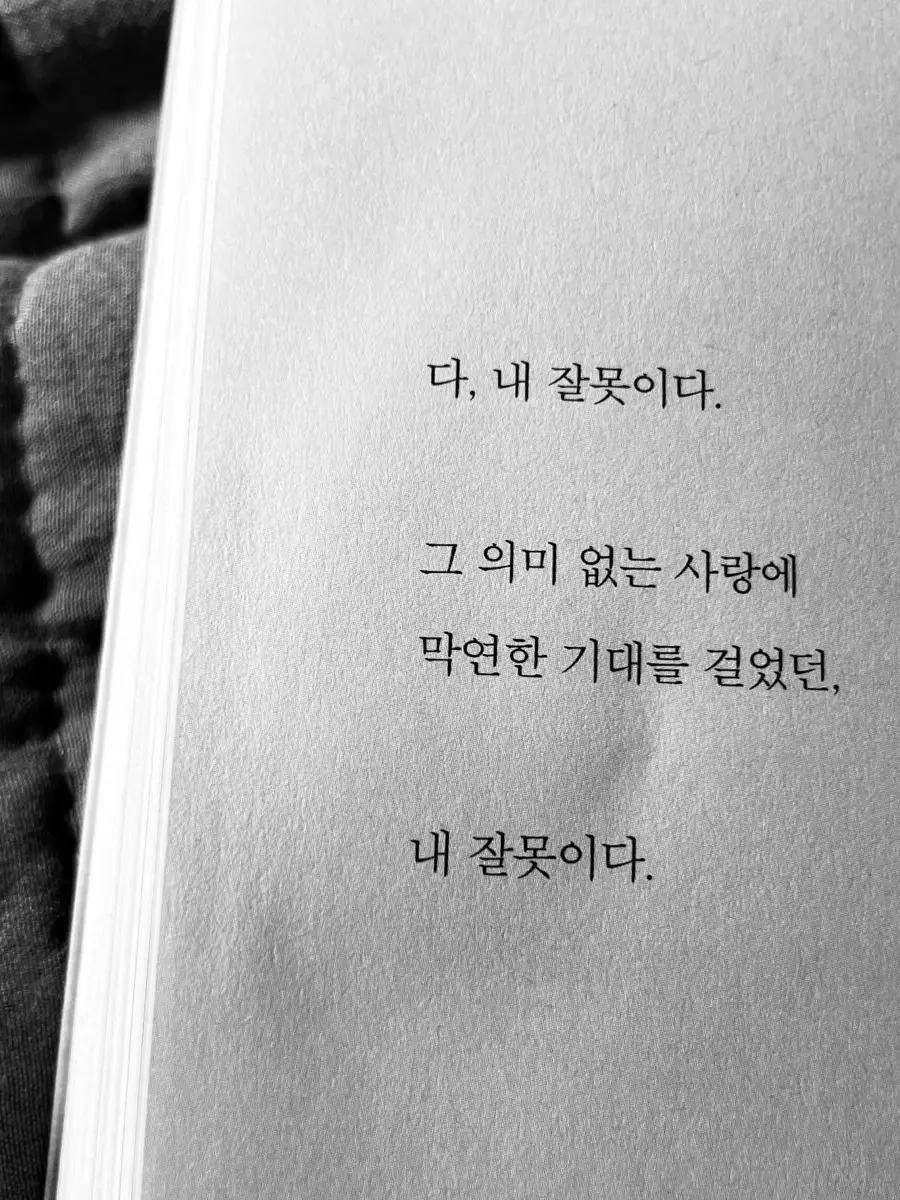 다, 내 잘못이다.
그 의미 없는 사랑에
막연한 기대를 걸었던,
내 잘못이다.